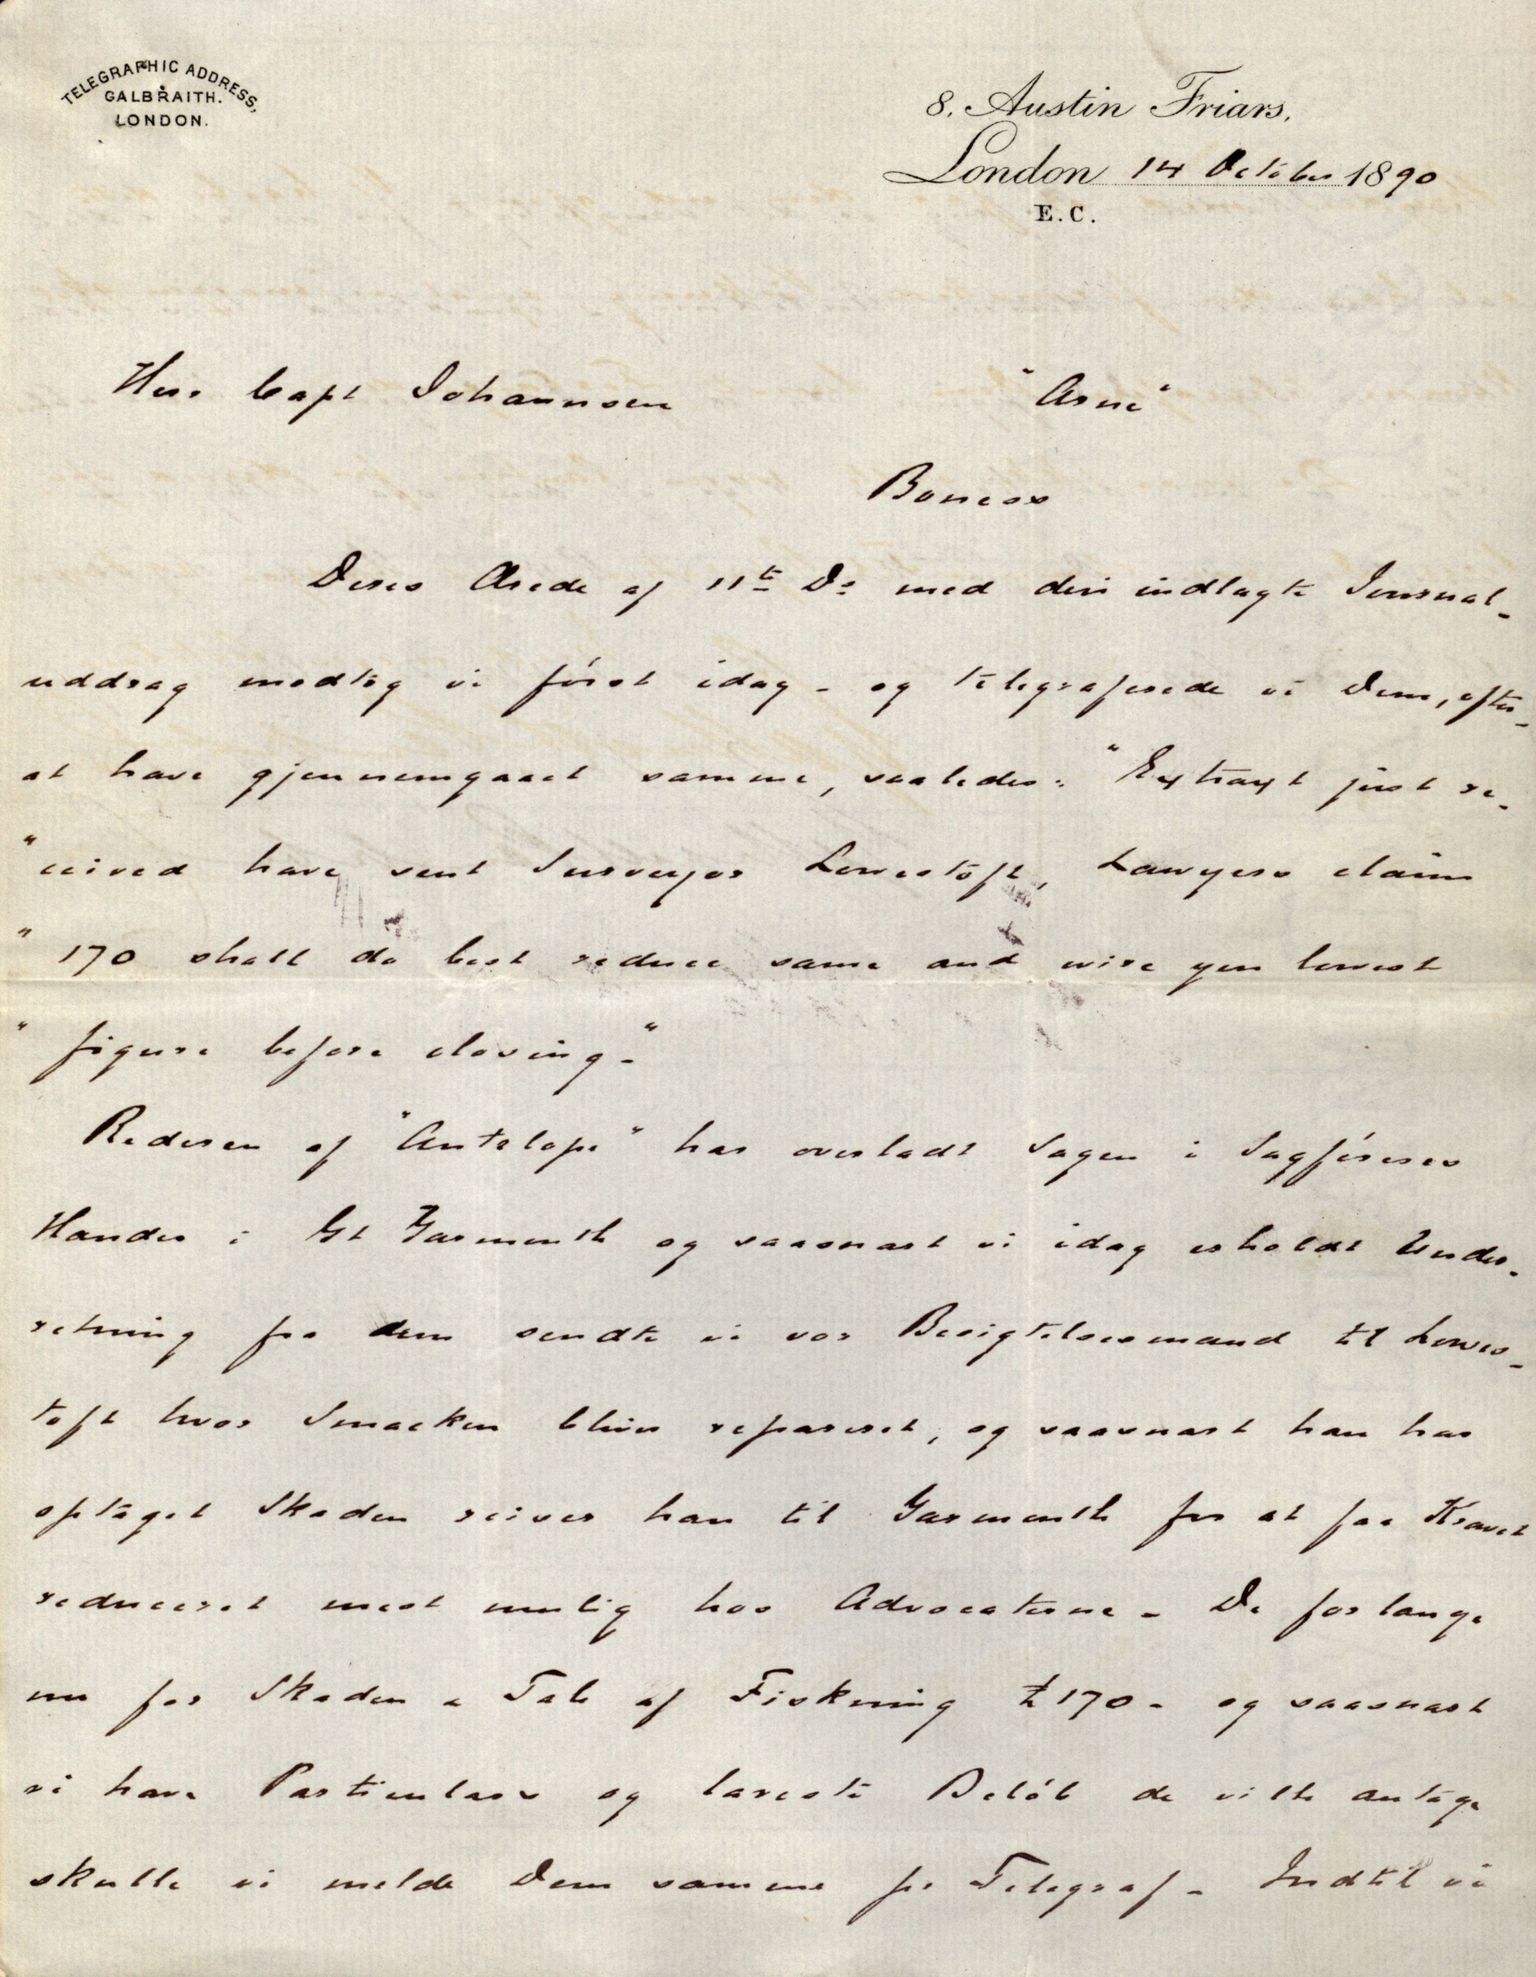 TELEGRAPHIC ADDRESS,
GALBRAITH.
LONDON.
8, Austin Friars,
London 14 October 1890
E.C.
Herr Capt Johannsen "Arne"
Boness
Deres Ærede af 11te Ds med den indlagte Journal-
uddrag modtog vi først idag - og telegraferede vi Dem, efter-
at have gjennemgaaet samme, saaledes: "Extraxt just re-
"ceived have sent Surveyor Lowestoft, Lawyers claim
"170 shall do best reduce same and wire you lowest
"figure before closing-"
Rederen af "Antelope" har overladt Sagen i Sagføreres
Hænder i Gt Yarmouth og saasnart vi idag erholdt Under-
retning fra dem sendte vi vor Besigtelsesmand til Lowes-
toft hvor Smacken bliver repareret, og saasnart han har
optaget Skaden reiser han til Yarmouth for at faa Kravet
reduceret mest mulig hos Advocaterne - De forlange
nu for Skaden & Tab af Fiskning £170 - og saasnart
vi have Particulars og laveste Beløb de ville antage
skulle vi melde Dem samme pr Telegraf - Indtil vi